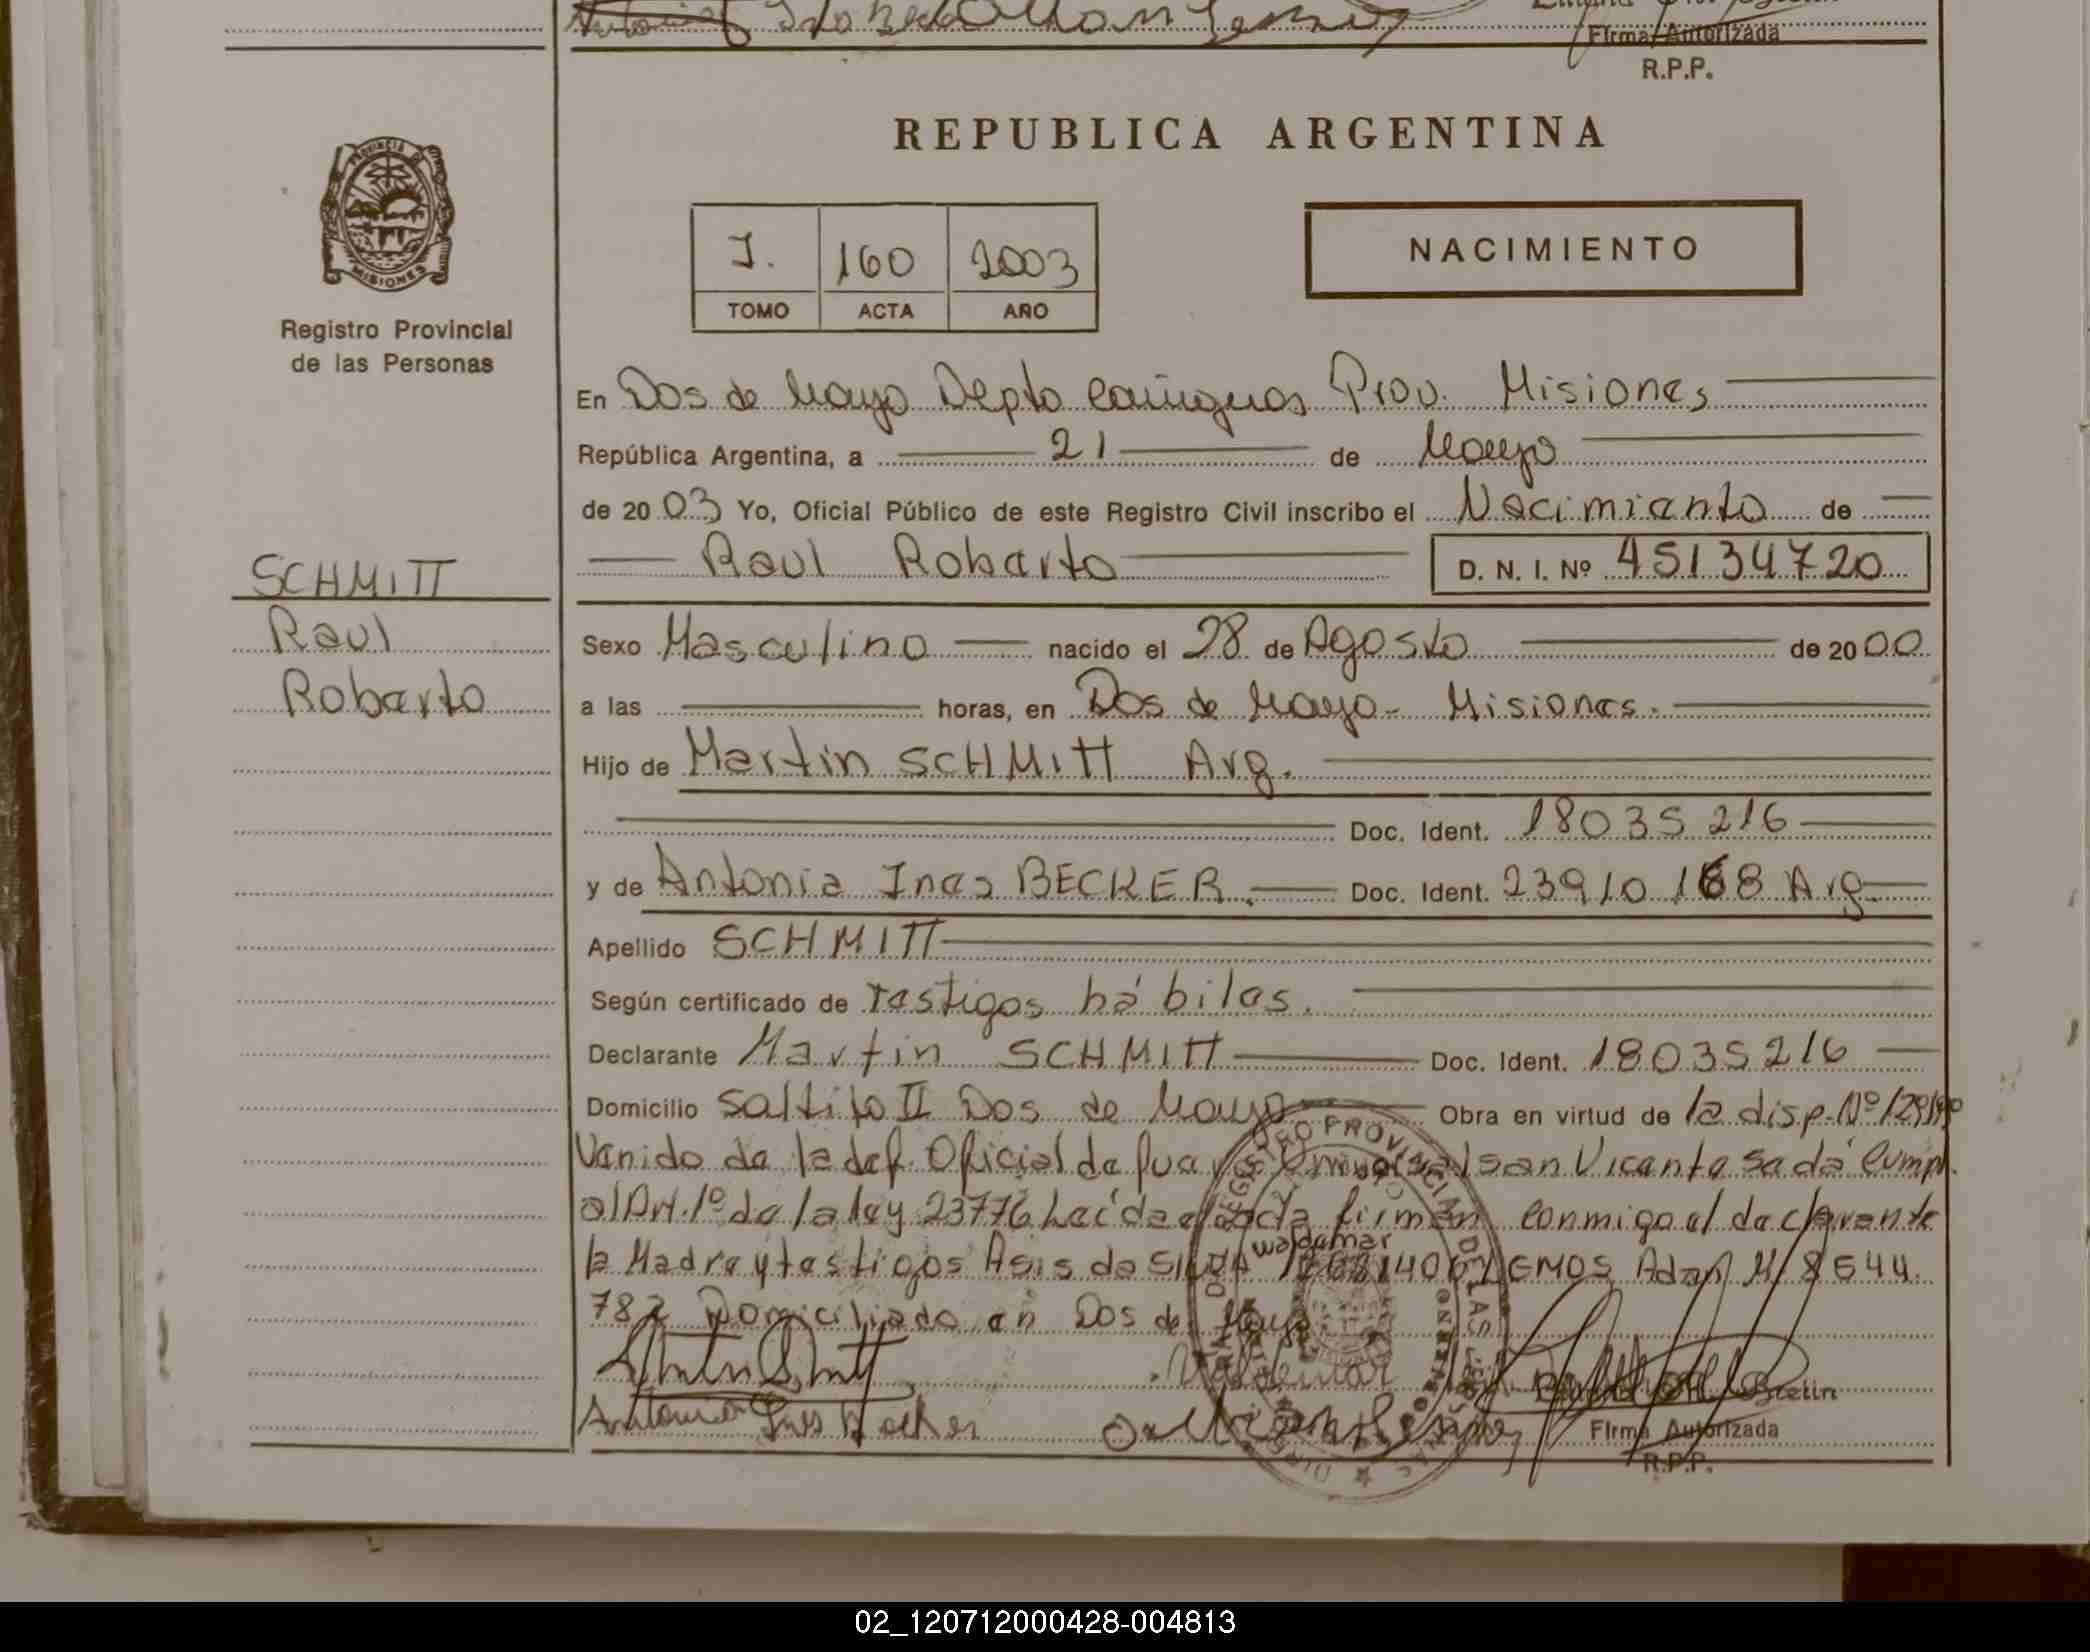 Firma Autorizada
R.P.P.
PROVINCIA DE
MISIONES
Registro Provincial
de las Personas
REPUBLICA ARGENTINA
I. 160 2003
TOMO ACTA AÑO
NACIMIENTO
En Dos de Mayo Depto Cainguas Prov. Misiones
República Argentina, a 21 de Mayo
de 2003 Yo, Oficial Público de este Registro Civil inscribo el Nacimiento de
Raul Roberto D. N. I. Nº 45134720
SCHMITT
Raul
Roberto
Sexo Masculino nacido el 28 de Agosto de 2000
a las horas, en Dos de Mayo - Misiones.
Hijo de Martin SCHMITT Arg.
Doc. Ident. 18035216
y de Antonia Ines BECKER. Doc. Ident. 23910168 Arg
Apellido SCHMITT
Según certificado de testigos hábiles.
Declarante Martin SCHMITT Doc. Ident. 18035216
Domicilio Saltito II Dos de Mayo Obra en virtud de la disp. Nº
Venido de la def. Oficial de San Vicente se dá Cumpl.
al Art. 1º de la ley 23776 Leída el acta firman conmigo el declarante
la Madre y testigos Asis da SILVA Waldemar LEMOS Adan M 8544
782 Domiciliado en Dos de Mayo
Antonia Ines Becker
Firma Autorizada
R.P.P.
02_120712000428-004813